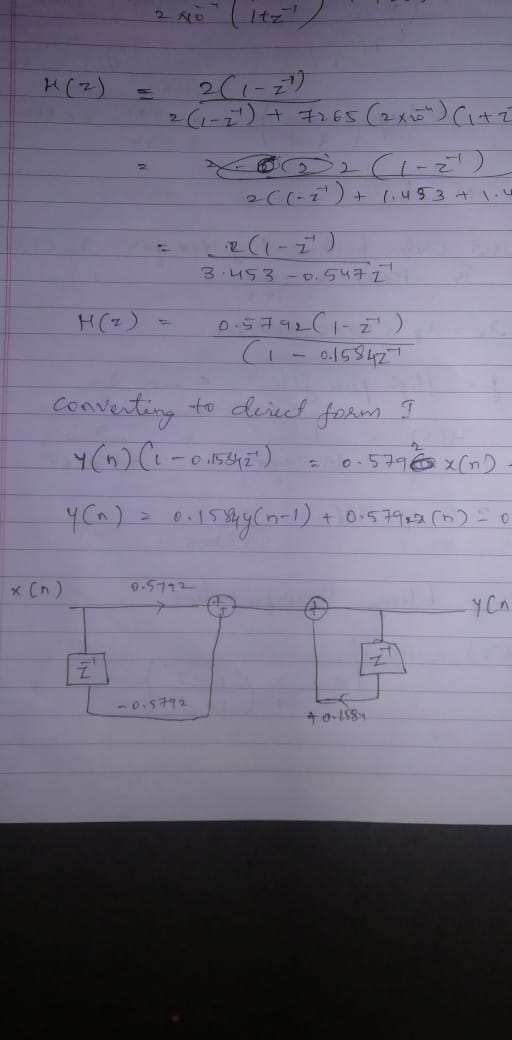 2×10⁻⁴ (1+z⁻¹)
H(z) = 2(1-z⁻¹)
2(1-z⁻¹) + 7265(2×10⁻⁴)(1+z
= 2(1-z⁻¹)
2(1-z⁻¹) + 1.453 + 1.4
= 2(1-z⁻¹)
3.453 - 0.547z⁻¹
H(z) = 0.5792(1-z⁻¹)
(1 - 0.1584z⁻¹
Converting to direct form ?
y(n)(1-0.1584z⁻¹) = 0.5792 x(n) -
y(n) = 0.1584y(n-1) + 0.5792x(n) - 0
x(n) 0.5792 + + y(n
z⁻¹ z⁻¹
-0.5792 +0.1584